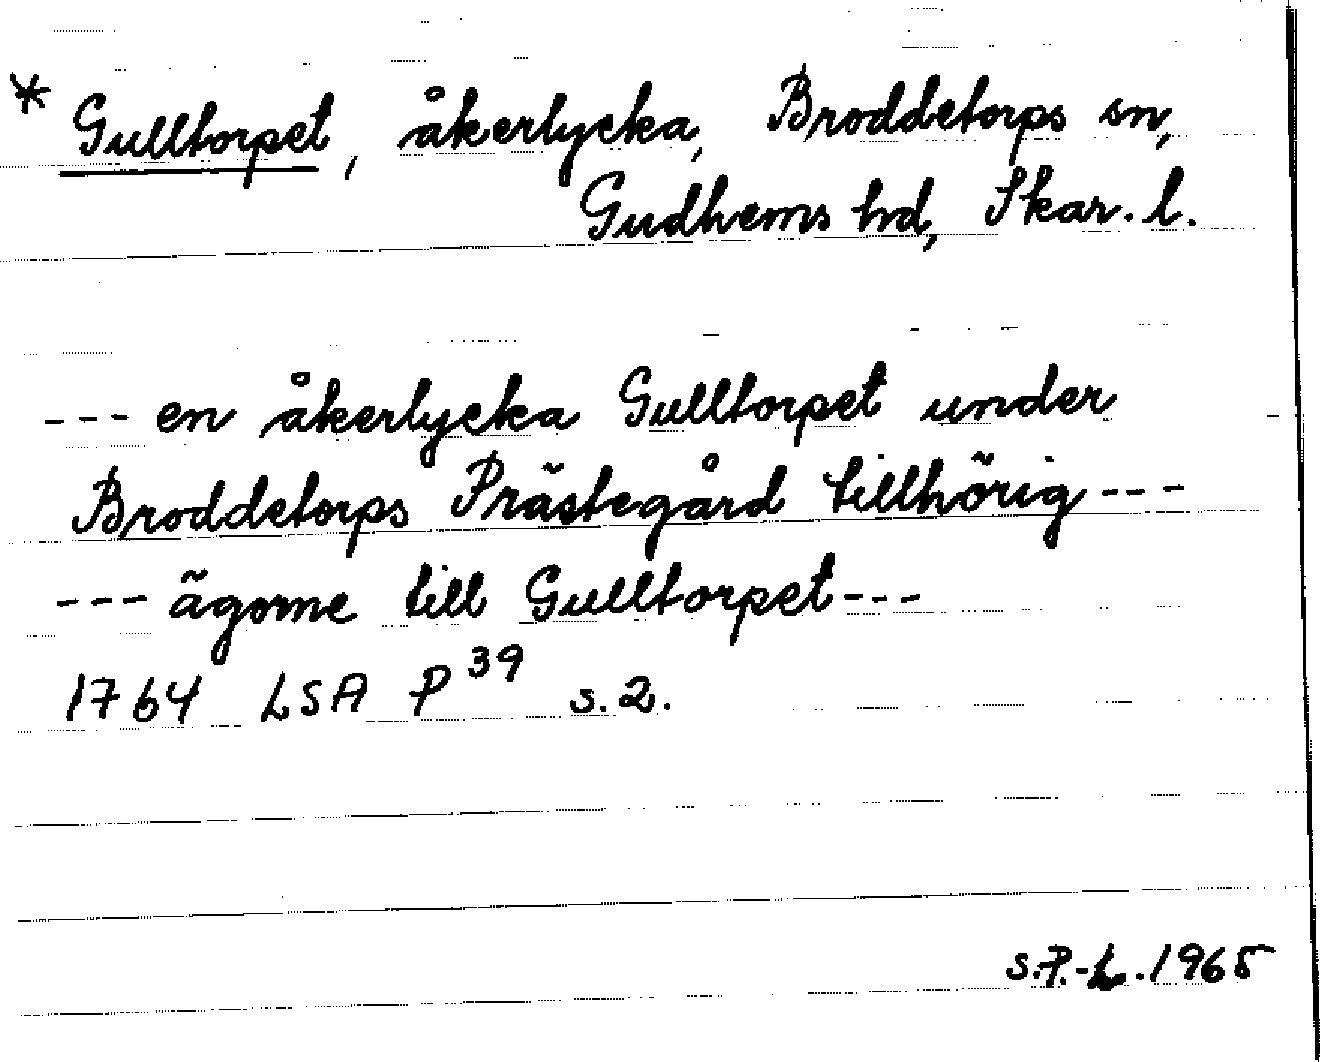 * Gulltorpet, åkerlycka, Broddetorps sn,
Gudhems hd, Skar. l.
--- en åkerlycka Gulltorpet under
Broddetorps Prästegård tillhörig ---
--- ägorne till Gulltorpet ---
1764 LSA P 39 s. 2.
S.P.-L. 1965